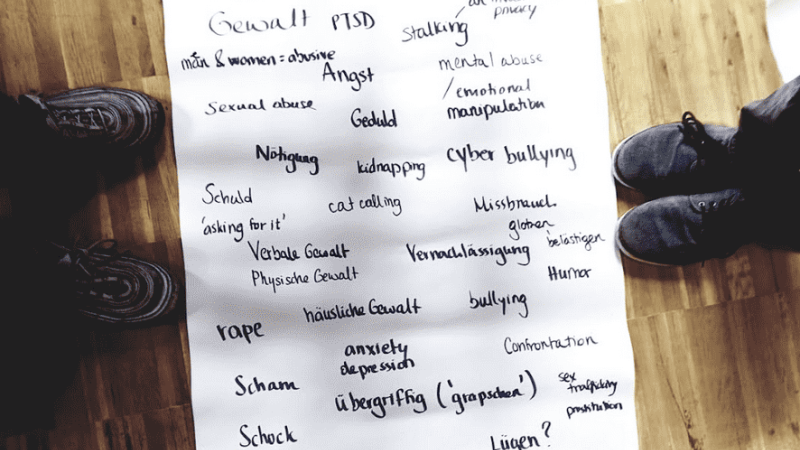 privacy
Gewalt PTSD
Stalking
män & women = abusive
mental abuse
Angst
/ emotional
manipulation
Sexual abuse
Geduld
Nötigung
kidnapping
cyber bullying
Schuld
cat calling
Missbrauch
'asking for it'
glotzen
belästigen
Verbale Gewalt
Vernachlässigung
Physische Gewalt
Humor
häusliche Gewalt
bullying
rape
anxiety
depression
Confrontation
Scham
übergriffig ('grapschen')
sex
trafficking
prostitution
Schock
Lügen?